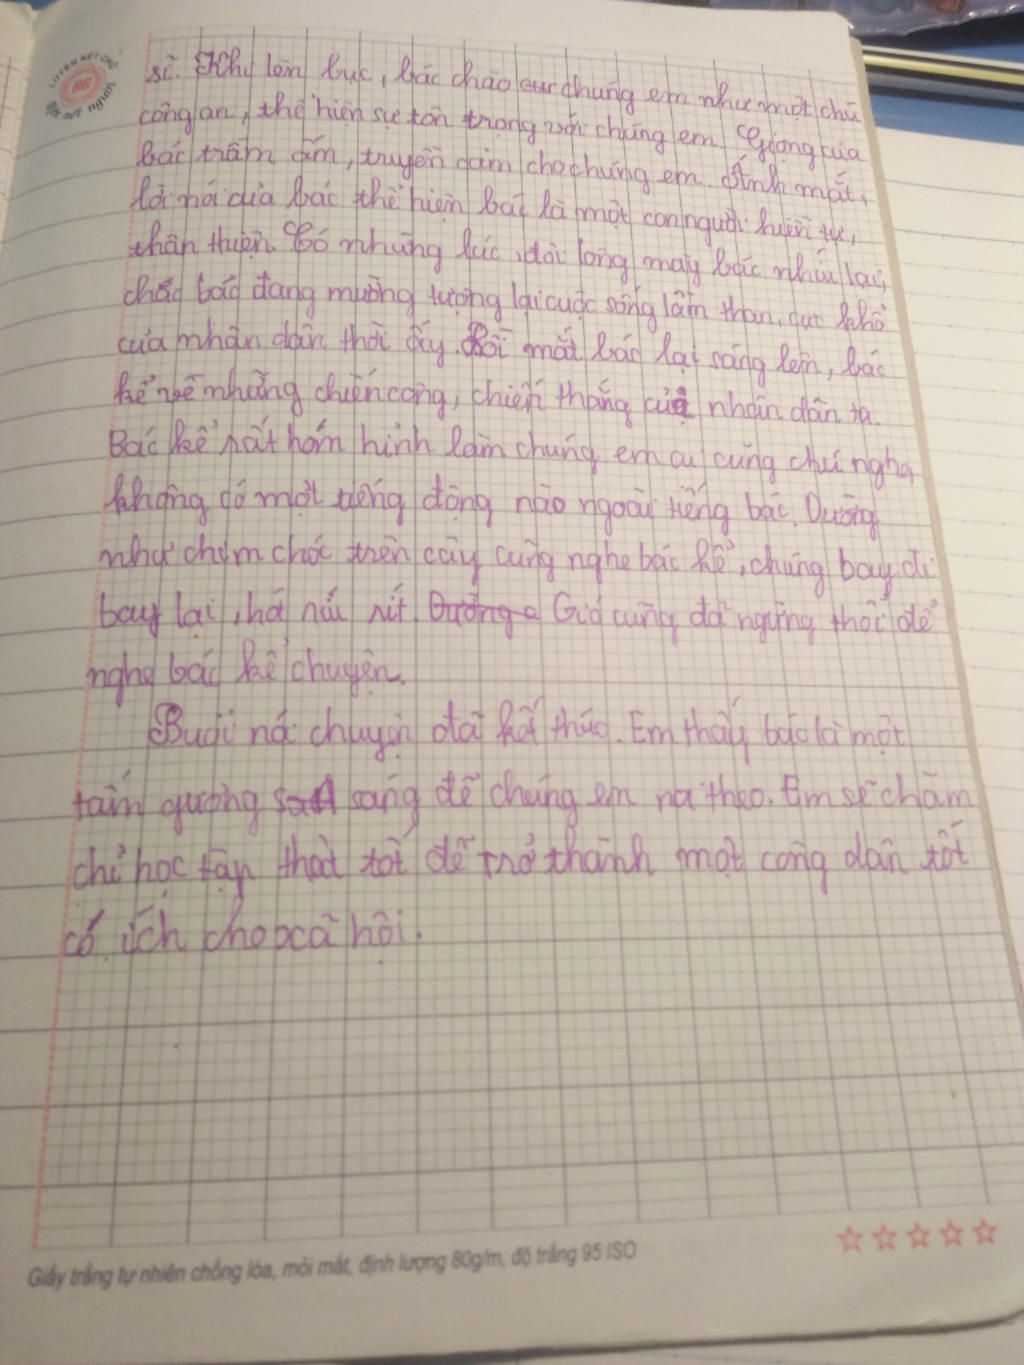 sĩ. Khi lên bục, bác chào chúng em như một chú
công an, thể hiện sự tôn trọng với chúng em. Giọng của
bác trầm ấm, truyền cảm cho chúng em. Ánh mắt,
lời nói của bác thể hiện bác là một con người hiền từ,
thân thiện. Có những lúc, đôi lông mày bác nhíu lại,
chắc bác đang mường tượng lại cuộc sống lầm than, cực khổ
của nhân dân thời ấy. Rồi mắt bác lại sáng lên, bác
kể về những chiến công, chiến thắng của nhân dân ta.
Bác kể rất hóm hỉnh làm chúng em ai cũng chú nghe,
không có một tiếng động nào ngoài tiếng bác. Dường
như chim chóc trên cây cũng nghe bác kể, chúng bay đi
bay lại, hót ríu rít. Đường Gió cũng đã ngừng thổi để
nghe bác kể chuyện.
Buổi nói chuyện đã kết thúc. Em thấy bác là một
tấm gương sáng để chúng em noi theo. Em sẽ chăm
chỉ học tập thật tốt để trở thành một công dân tốt
có ích cho xã hội.
Giấy trắng tự nhiên chống lóa, mỏi mắt, định lượng 80g/m, độ trắng 95 ISO